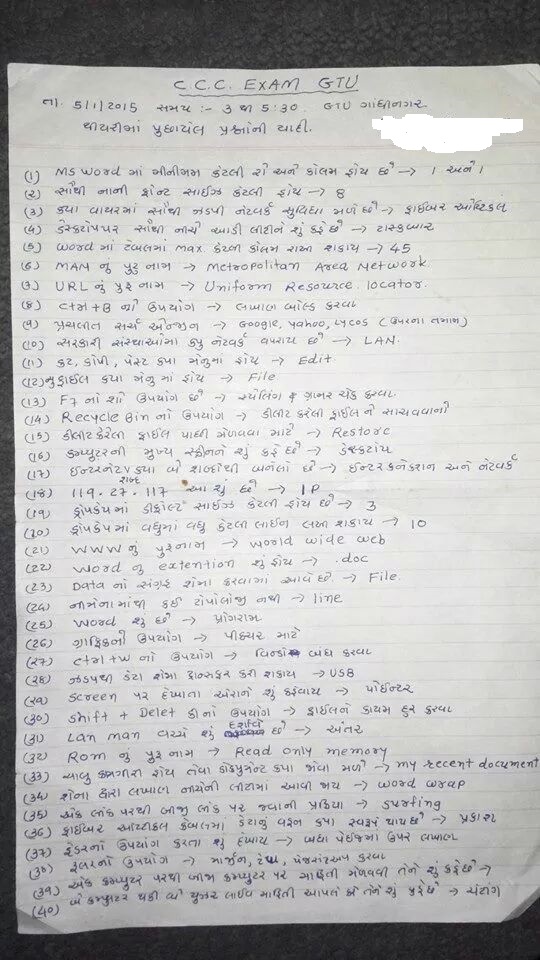 C.C.C. EXAM GTU
તા. 5/1/2015 સમય :- 3 થી 5:30. GTU ગાંધીનગર
થીયરીમાં પુછાયેલ પ્રશ્નોની યાદી.
(1) MS Word માં મીનીમમ કેટલી રો અને કોલમ હોય છે → 1 અને 1
(2) સૌથી નાની ફોન્ટ સાઈઝ કેટલી હોય → 8
(3) કયા વાયરમાં સૌથી ઝડપી નેટવર્ક સુવિધા મળે છે → ફાઈબર ઓપ્ટિકલ
(4) ડેસ્કટોપપર સૌથી નીચે આડી લીટીને શું કહે છે → ટાસ્કબાર
(5) Word માં ટેબલમાં max. કેટલી કોલમ રાખી શકાય → 45
(6) MAN નું પુરૂ નામ → Metropolitan Area Network.
(7) URL નું પુરૂ નામ → Uniform Resource locator.
(8) Ctrl+B નો ઉપયોગ → લખાણ બોલ્ડ કરવા
(9) પ્રચલીત સર્ચ એન્જીન → Google, yahoo, Lycos (ઉપરના તમામ)
(10) સરકારી સંસ્થાઓમાં કયુ નેટવર્ક વપરાય છે → LAN.
(11) કટ, કોપી, પેસ્ટ કયા મેનુમાં હોય → Edit
(12) ન્યુ ફાઈલ કયા મેનુ માં હોય → File
(13) F7 નો શો ઉપયોગ છે → સ્પેલિંગ & ગ્રામર ચેક કરવા.
(14) Recycle Bin નો ઉપયોગ → ડીલીટ કરેલી ફાઈલ ને સાચવવાની
(15) ડીલીટ કરેલી ફાઈલ પાછી મેળવવા માટે → Restore
(16) કમ્પ્યુટરની મુખ્ય સ્ક્રીનને શું કહે છે → ડેસ્કટોપ
(17) ઈન્ટરનેટ શબ્દ કયા બે શબ્દોથી બનેલો છે → ઈન્ટરકનેકશન અને નેટવર્ક
(18) 119.27.117 આ શું છે → IP
(19) ડ્રોપકેપમાં ડીફોલ્ટ સાઈઝ કેટલી હોય છે → 3
(20) ડ્રોપકેપમાં વધુમાં વધુ કેટલી લાઈન લખી શકાય → 10
(21) WWW નું પુરૂનામ → World wide web
(22) Word નું extention શું હોય → .doc
(23) Data નો સંગ્રહ શેમા કરવામાં આવે છે. → File.
(24) નીચેનામાંથી કઈ ટોપોલોજી નથી → line
(25) Word શું છે → પ્રોગ્રામ
(26) ગ્રાફિકનો ઉપયોગ → પીકચર માટે
(27) Ctrl+W નો ઉપયોગ → વિન્ડો બંધ કરવા
(28) ઝડપથી ડેટા શેમા ટ્રાન્સફર કરી શકાય → USB
(29) Screen પર દેખાતા એરોને શું કહેવાય → પોઈન્ટર
(30) Shift + Delet કી નો ઉપયોગ → ફાઈલને કાયમ દુર કરવા
(31) Lan man વચ્ચે શું દર્શાવે છે → અંતર
(32) Rom નું પુરૂ નામ → Read only memory
(33) ચાલુ કામગીરી હોય તેવા ડોકયુમેન્ટ કયા જોવા મળે → my recent document
(34) શેના દ્વારા લખાણ નીચેની લીટીમાં આવી જાય → word wrap
(35) એક લીંક પરથી બીજી લીંક પર જવાની પ્રક્રિયા → સર્ફીંગ
(36) ફાઈબર ઓપ્ટીકલ કેબલમાં ડેટાનું વહન કયા સ્વરૂપે થાય છે → પ્રકાશ
(37) હેડરનો ઉપયોગ કરતા શું દેખાય → બધા પેઈજમાં ઉપર લખાણ
(38) રૂલરનો ઉપયોગ → માર્જીન, ટેબ, પેજસેટઅપ કરવા
(39) એક કમ્પ્યુટર પરથી બીજા કમ્પ્યુટર પર માહિતી મેળવવી તેને શું કહે છે →
(40) બે કમ્પ્યુટર થકી બે યુઝર લાઈવ માહિતી આપલે કરે તેને શું કહે છે → ચેટીંગ